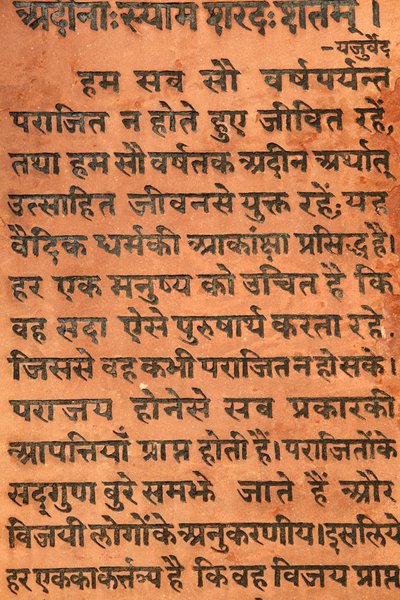 अदीनाः स्याम शरदः शतम् ।
-यजुर्वेद
हम सब सौ वर्षपर्यन्त
पराजित न होते हुए जीवित रहें,
तथा हम सौ वर्षतक अदीन अर्थात्
उत्साहित जीवनसे युक्त रहें; यह
वैदिक धर्मकी आकांक्षा प्रसिद्ध है।
हर एक मनुष्य को उचित है कि
वह सदा ऐसे पुरुषार्थ करता रहे,
जिससे वह कभी पराजित न हो सके।
पराजय होनेसे सब प्रकारकी
आपत्तियाँ प्राप्त होती है। पराजितोंके
सद्गुण बुरे समझे जाते हैं और
विजयी लोगोंके अनुकरणीय। इसलिये
हर एकका कर्त्तव्य है कि वह विजय प्राप्त